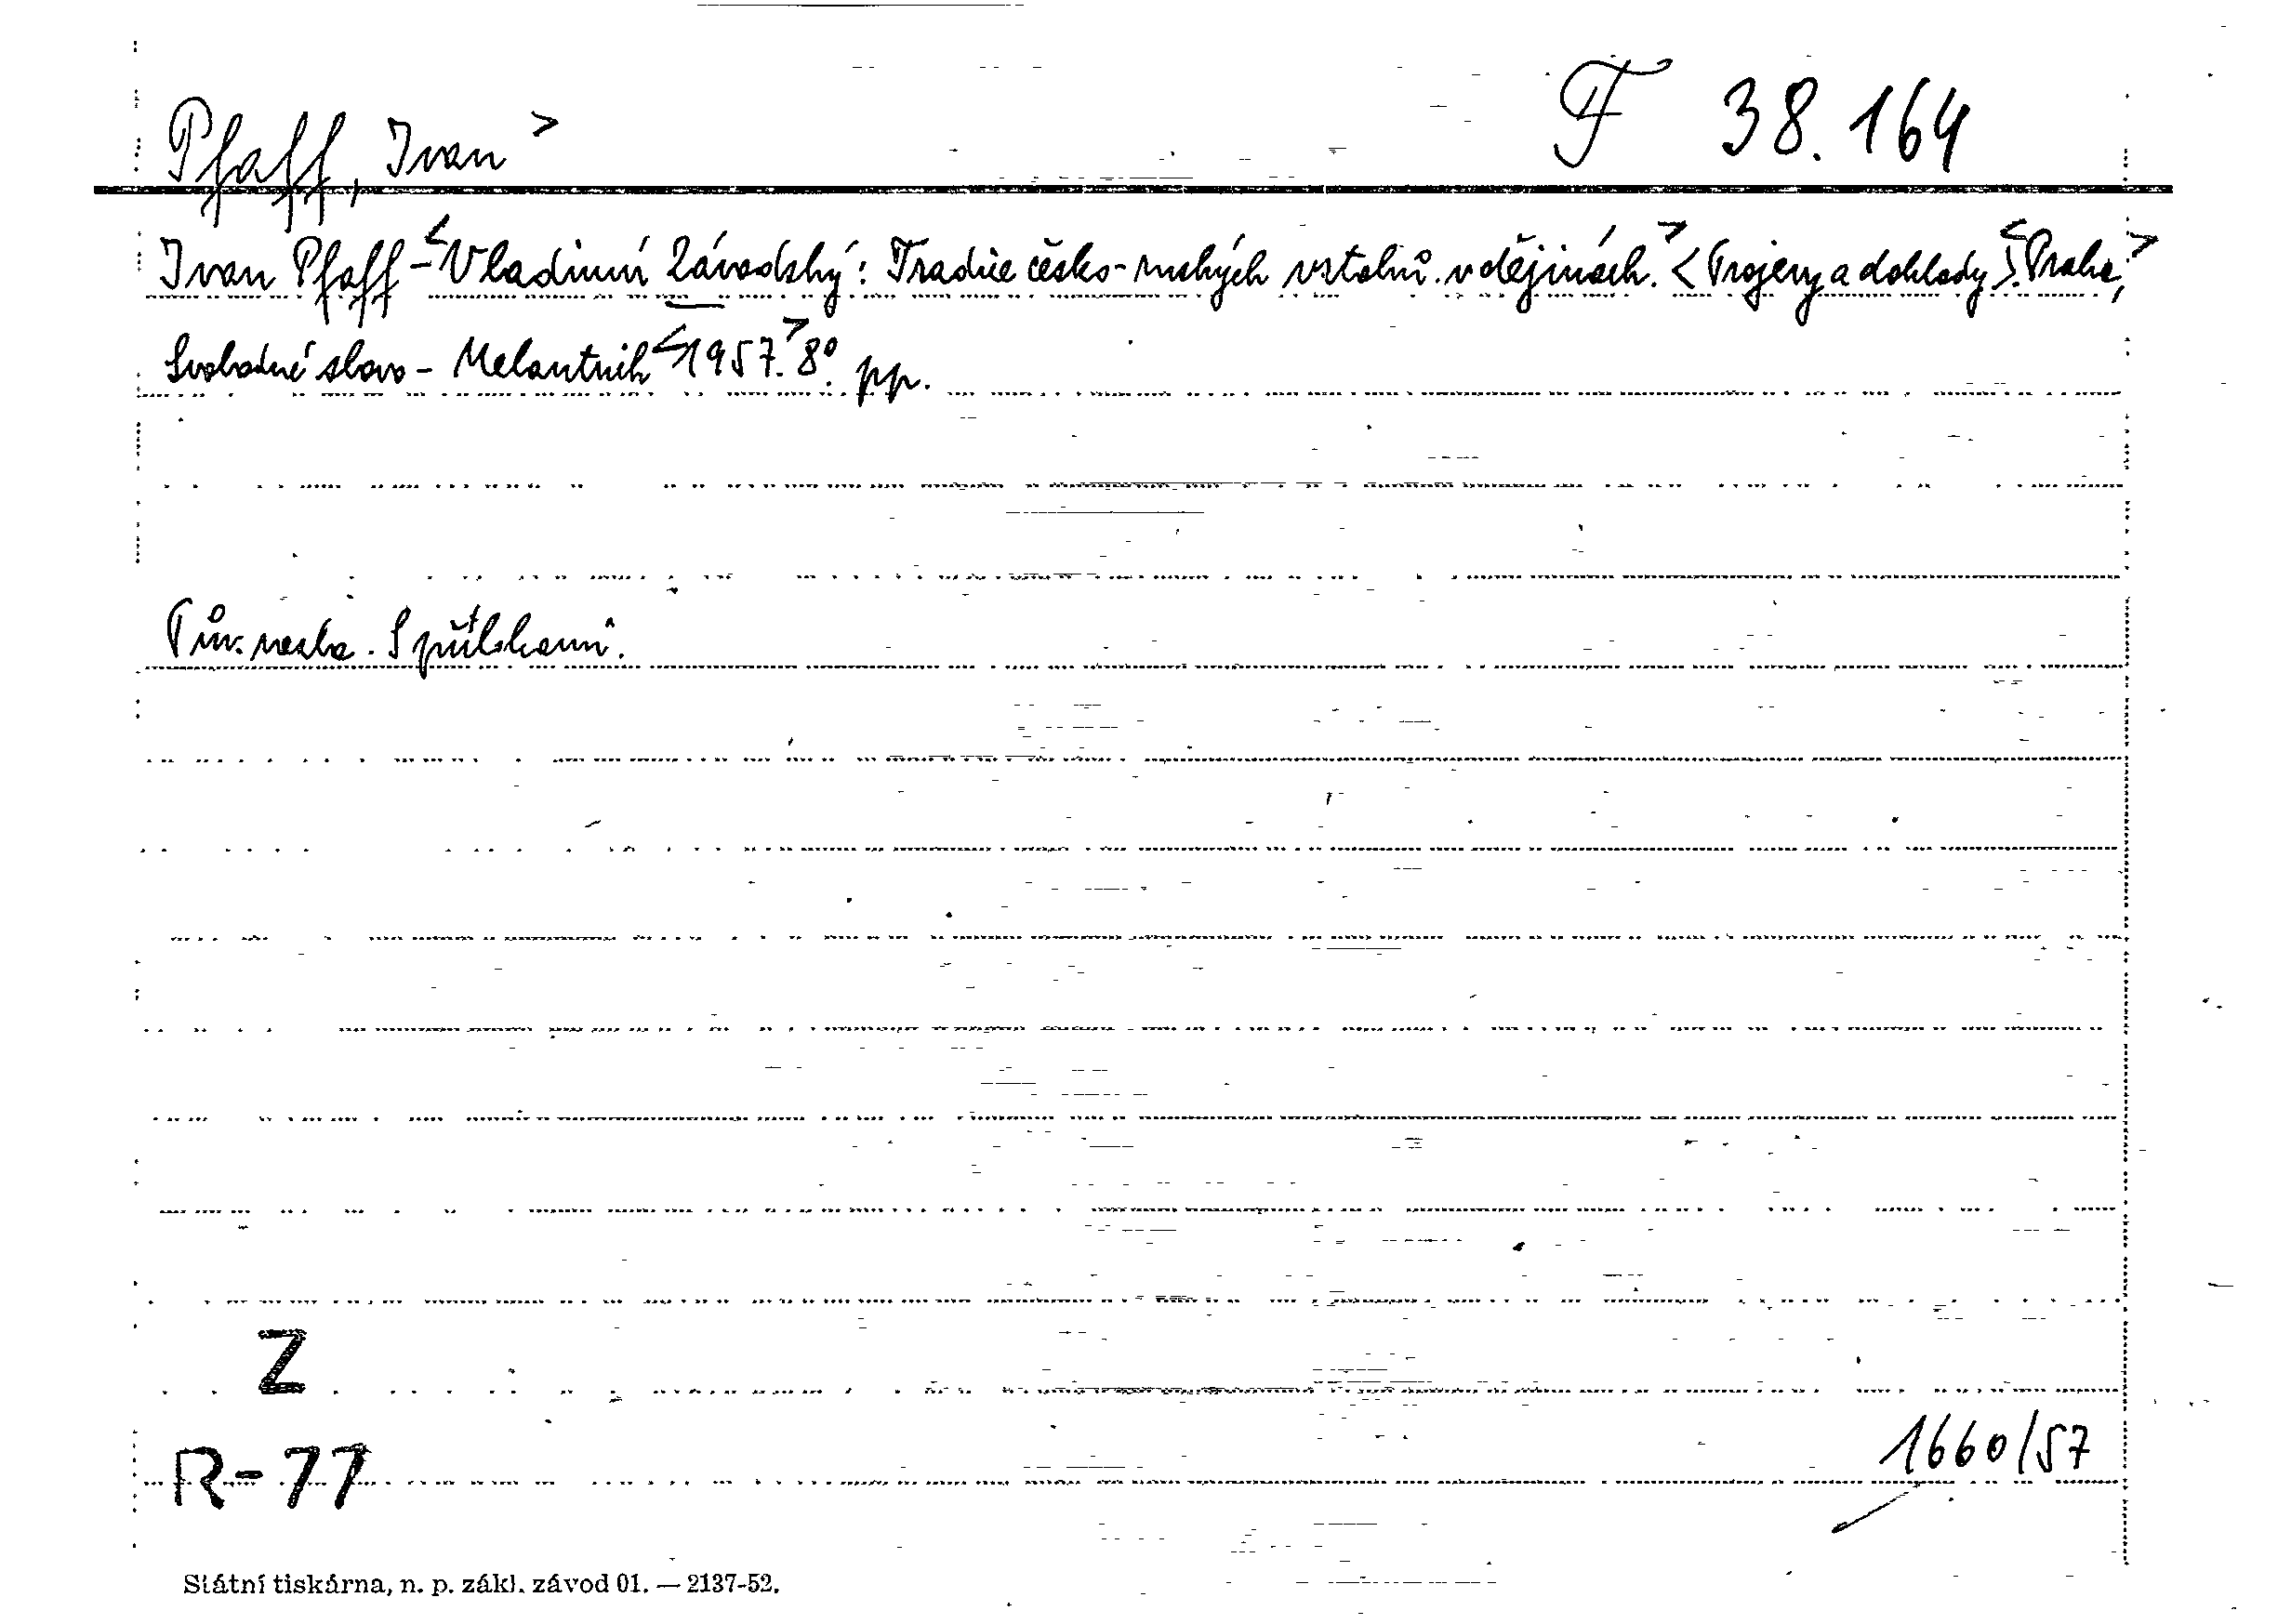 Pfaff, Ivan > F 38.164
Ivan Pfaff - <Vladimír Závodský: Tradice česko-ruských vztahů v dějinách.> <Projevy a doklady>. <Praha,>
Svobodné slovo - Melantrich <1957.> 8°. pp.
Pův. vazba. S přílohami.
Z
R-77
1660/57
Státní tiskárna, n. p. zákl. závod 01. — 2137-52.